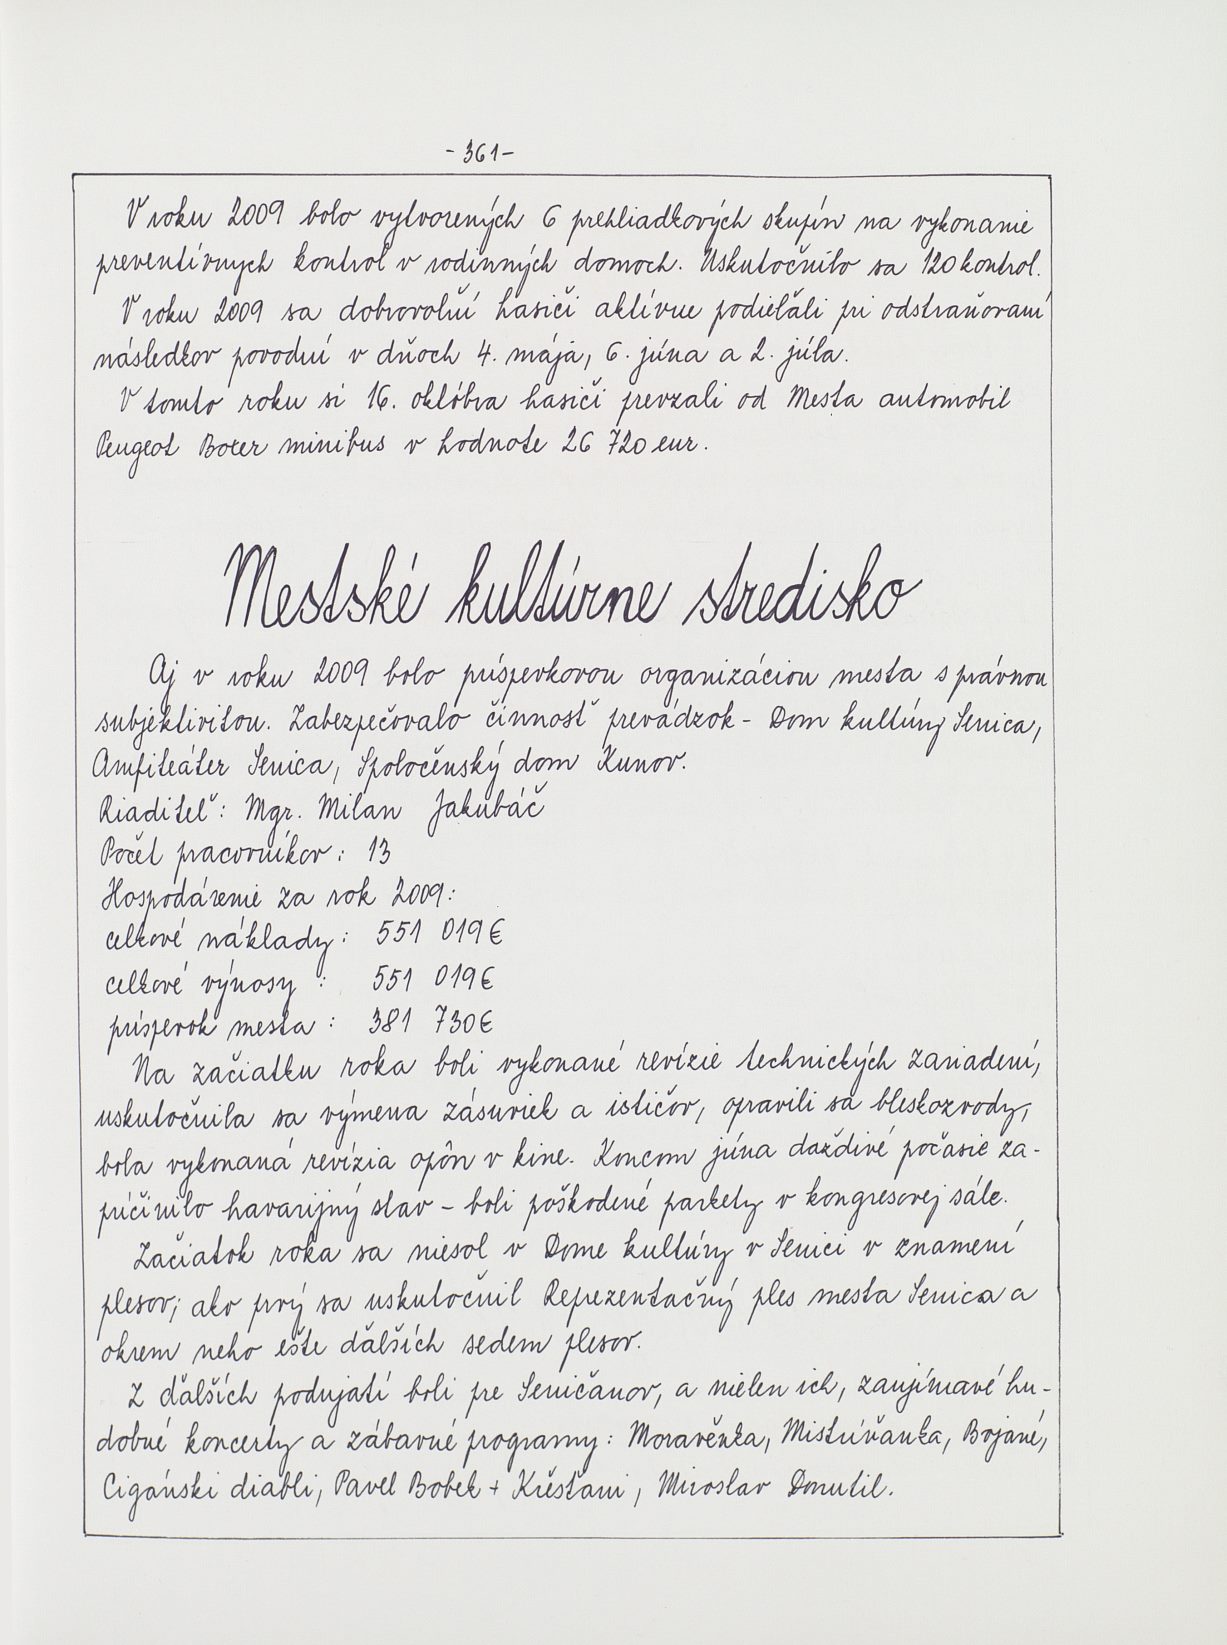 - 361 -
V roku 2009 bolo vytvorených 6 prehliadkových skupín na vykonanie
preventívnych kontrol v rodinných domoch. Uskutočnilo sa 120 kontrol.
V roku 2009 sa dobrovolní hasiči aktívne podieľali pri odstraňovaní
následkov povodní v dňoch 4. mája, 6. júna a 2. júla.
V tomto roku si 16. októbra hasiči prevzali od Mesta automobil
Peugeot Boxer minibus v hodnote 26 720 eur.
Mestské kultúrne stredisko
Aj v roku 2009 bolo príspevkovou organizáciou mesta s právnou
subjektivitou. Zabezpečovalo činnosť prevádzok - Dom kultúry Senica,
Amfiteáter Senica, Spoločenský dom Kunov.
Riaditeľ: Mgr. Milan Jakubáč
Počet pracovníkov: 13
Hospodárenie za rok 2009:
celkové náklady: 551 019 €
celkové výnosy : 551 019 €
príspevok mesta : 381 730 €
Na začiatku roka boli vykonané revízie technických zariadení,
uskutočnila sa výmena zásuviek a ističov, opravili sa bleskozvody,
bola vykonaná revízia opôn v kine. Koncom júna daždivé počasie za-
príčinilo havarijný stav - boli poškodené parkety v kongresovej sále.
Začiatok roka sa niesol v Dome kultúry v Senici v znamení
plesov; ako prvý sa uskutočnil Reprezentačný ples mesta Senica a
okrem neho ešte ďalších sedem plesov.
Z ďalších podujatí boli pre Seničanov, a nielen ich, zaujímavé hu-
dobné koncerty a zábavné programy: Moravěnka, Mistríňanka, Bojané,
Cigánski diabli, Pavel Bobek + Křesťani, Miroslav Donutil.